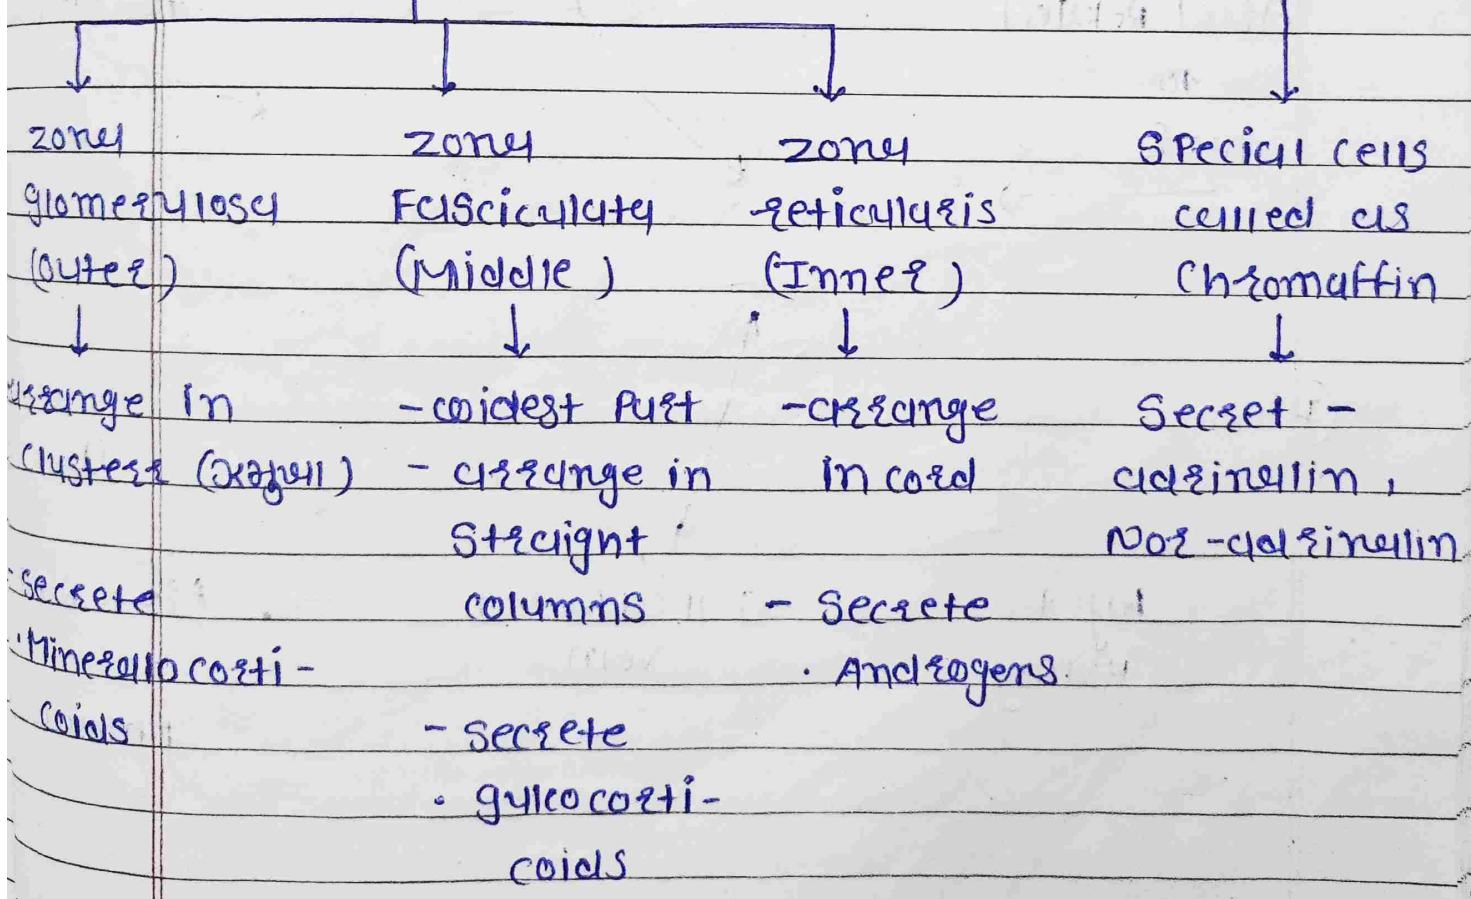 zona
glomerulosa
(outer)
arrange in
clusters (સમુખા)
secrete
Minerallocorti-
coids
zona
Fasciculata
(Middle)
- widest part
- arrange in
straight
columns
- secrete
• gulcocorti-
coids
zona
reticularis
(Inner)
- arrange
in cord
- secrete
• Androgens.
Special cells
called as
Chromaffin
Secret -
adrinalin,
Nor-adrinalin